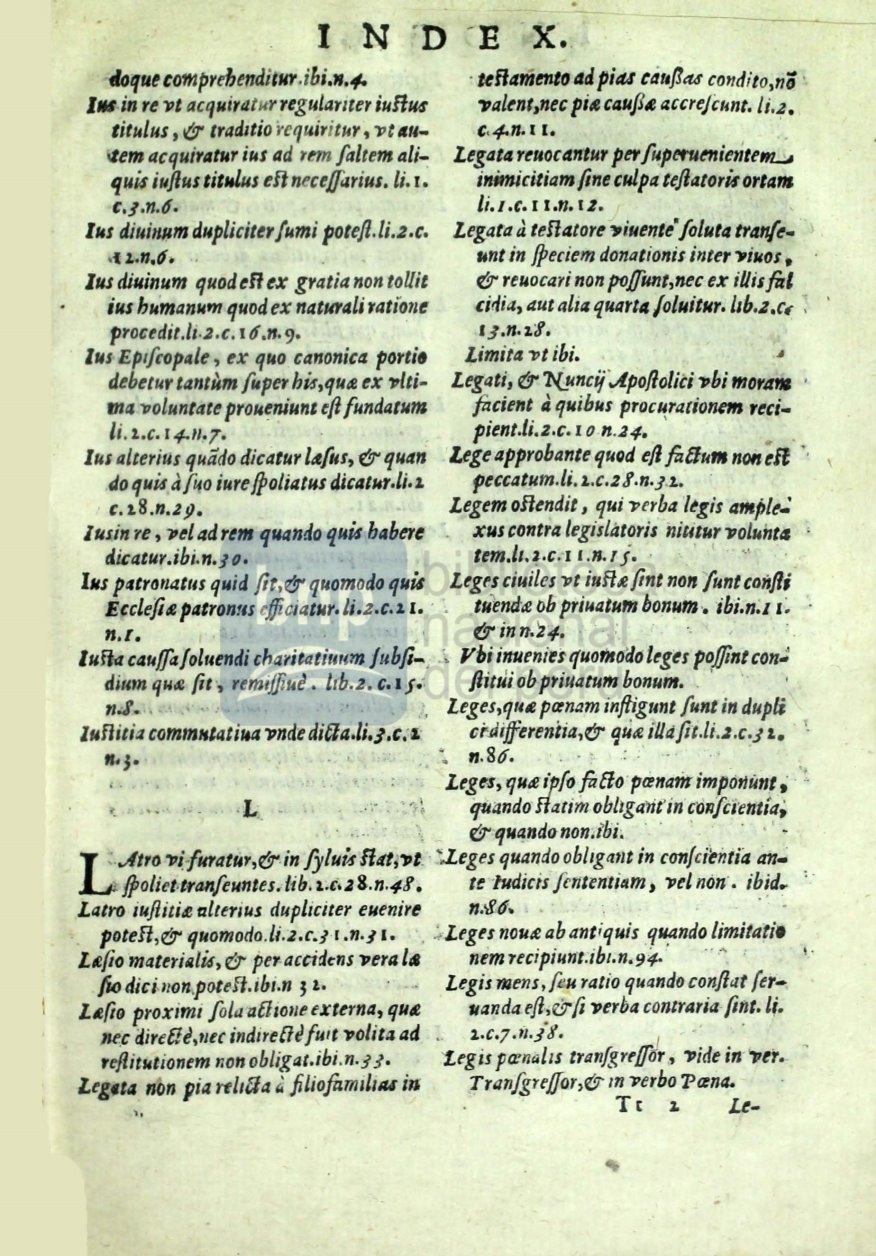 INDEX.
doque comprehenditur.ibi.n.4.
Ius in re vt acquiratur regulariter iustus
titulus, & traditio requiritur, vt au-
tem acquiratur ius ad rem saltem ali-
quis iustus titulus est necessarius. li.1.
c.3.n.6.
Ius diuinum dupliciter sumi potest.li.2.c.
12.n.6.
Ius diuinum quod est ex gratia non tollit
ius humanum quod ex naturali ratione
procedit.li.2.c.16.n.9.
Ius Episcopale, ex quo canonica portio
debetur tantùm super his,quæ ex vlti-
ma voluntate proueniunt est fundatum
li.2.c.14.n.7.
Ius alterius quãdo dicatur læsus, & quan
do quis à suo iure spoliatus dicatur.li.2
c.28.n.29.
Ius in re, vel ad rem quando quis habere
dicatur.ibi.n.30.
Ius patronatus quid sit,& quomodo quis
Ecclesiæ patronus efficiatur.li.2.c.21.
n.1.
Iusta caussa soluendi charitatiuum subsi-
dium quæ sit, remissiuè. lib.2.c.15.
n.8.
Iustitia commutatiua vnde dicta.li.3.c.2
n.3.
L
LAtro vi furatur,& in syluis stat,vt
spoliet transeuntes.lib.2.c.28.n.48.
Latro iustitiæ alterius dupliciter euenire
potest,& quomodo.li.2.c.31.n.31.
Læsio materialis, & per accidens vera læ
sio dici non potest.ibi.n 32.
Læsio proximi sola actione externa, quæ
nec directè,nec indirectè fuit volita ad
restitutionem non obligat.ibi.n.33.
Legata non pia relicta à filiofamilias in
testamento ad pias caussas condito,nõ
valent,nec piæ caussæ accrescunt. li.2.
c.4.n.11.
Legata reuocantur per superuenientem
inimicitiam sine culpa testatoris ortam
li.1.c.11.n.12.
Legata à testatore viuente soluta transe-
unt in speciem donationis inter viuos,
& reuocari non possunt,nec ex illis fal
cidia, aut alia quarta soluitur. lib.2.c.
13.n.28.
Limita vt ibi.
Legati, & Nuncij Apostolici vbi moram
facient à quibus procurationem reci-
pient.li.2.c.10 n.24.
Lege approbante quod est factum non est
peccatum.li.2.c.28.n.32.
Legem ostendit, qui verba legis ample-
xus contra legislatoris nititur volunta
tem.li.2.c.11.n.15.
Leges ciuiles vt iustæ sint non sunt consti
tuendæ ob priuatum bonum. ibi.n.11.
& in n.24.
Vbi inuenies quomodo leges possint con-
stitui ob priuatum bonum.
Leges,quæ pœnam infligunt sunt in dupli
ci differentia,& quæ illa sit.li.2.c.32.
n.86.
Leges, quæ ipso facto pœnam imponunt,
quando statim obligant in conscientia,
& quando non.ibi.
Leges quando obligant in conscientia an-
te Iudicis sententiam, vel non. ibid.
n.86.
Leges nouæ ab antiquis quando limitatio
nem recipiunt.ibi.n.94.
Legis mens, seu ratio quando constat ser-
uanda est,& si verba contraria sint. li.
2.c.7.n.38.
Legis pœnalis transgressor, vide in ver.
Transgressor,& in verbo Pœna.
Tt 2 Le-